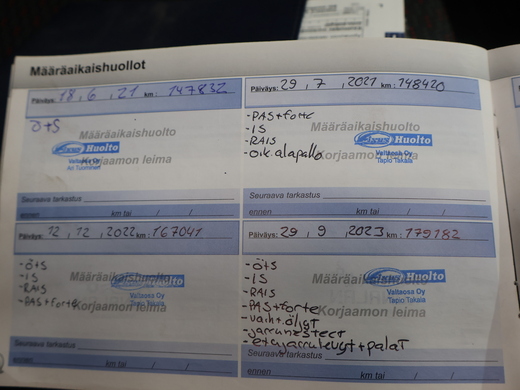 Määräaikaishuollot
Päiväys: 18 , 6 , 21 km : 147832
Ö+S
Määräaikaishuolto
Huolto
Valtaosa Oy
Ari Tuominen
Korjaamon leima
Seuraava tarkastus
ennen / / km tai / /
Päiväys: 29 , 7 , 2021 km : 148420
-PAS+forte
-IS
-RAIS
-oik.alapallo
Määräaikaishuolto
Huolto
Valtaosa Oy
Tapio Takala
Korjaamon leima
Seuraava tarkastus
ennen km tai / /
Päiväys: 12 , 12 , 2022 km : 167041
-Ö+S
-IS
-RAIS
-PAS+forte
Määräaikaishuolto
Huolto
Valtaosa Oy
Tapio Takala
Korjaamon leima
Seuraava tarkastus
ennen km tai / /
Päiväys: 29 , 9 , 2023 km : 179182
-Ö+S
-IS
-RAIS
-PAS+forte
-vaiht.öljyt
-jarrunesteet
-etujarrulevyt+palat
Määräaikaishuolto
Huolto
Valtaosa Oy
Tapio Takala
Korjaamon leima
Seuraava tarkastus
ennen km tai / /